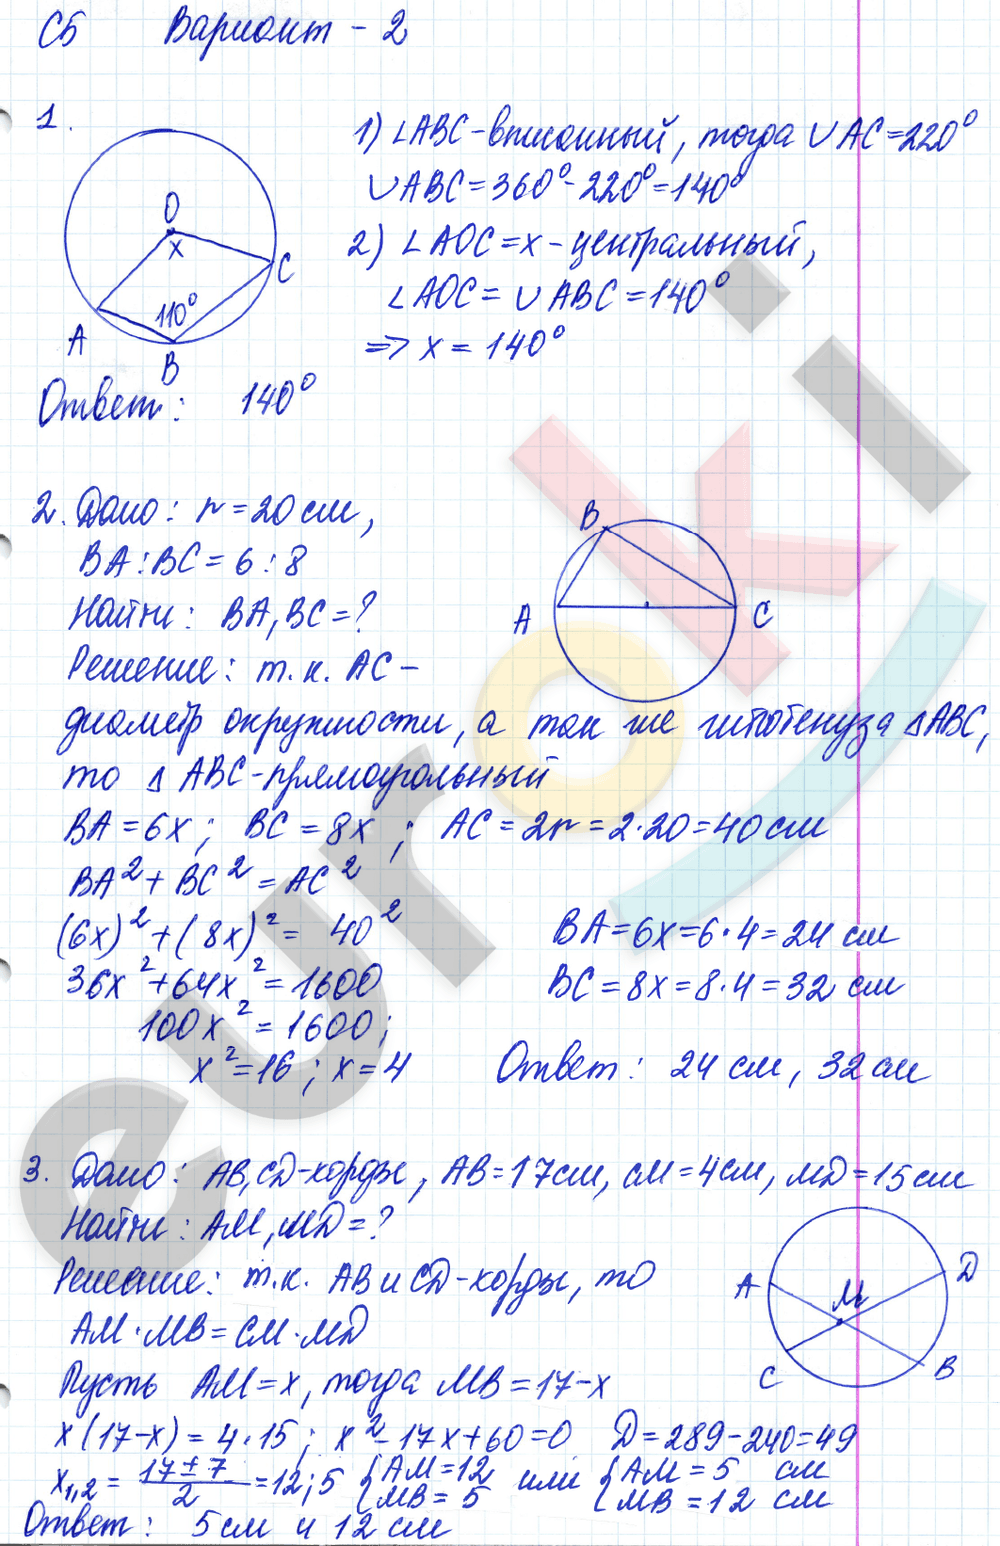 С5 Вариант - 2
1.
1) ∠ABC - вписанный, тогда ∪AC = 220°
∪ABC = 360° - 220° = 140°
2) ∠AOC = x - центральный,
∠AOC = ∪ABC = 140°
=> x = 140°
O
x
C
110°
A
B
Ответ: 140°
2. Дано: r = 20 см,
BA : BC = 6 : 8
Найти: BA, BC = ?
Решение: т.к. AC -
диаметр окружности, а так же гипотенуза ΔABC,
то Δ ABC - прямоугольный
B
A
C
BA = 6x; BC = 8x; AC = 2r = 2·20 = 40 см
BA² + BC² = AC²
(6x)² + (8x)² = 40²
36x² + 64x² = 1600
100x² = 1600;
x² = 16; x = 4
BA = 6x = 6·4 = 24 см
BC = 8x = 8·4 = 32 см
Ответ: 24 см, 32 см
3. Дано: AB, CD - хорды, AB = 17 см, CM = 4 см, MD = 15 см
Найти: AM, MD = ?
Решение: т.к. AB и CD - хорды, то
AM · MB = CM · MD
Пусть AM = x, тогда MB = 17 - x
A
D
M
C
B
x(17 - x) = 4·15; x² - 17x + 60 = 0 D = 289 - 240 = 49
x₁,₂ = (17 ± 7)/2 = 12; 5 { AM = 12, MB = 5 или { AM = 5 см, MB = 12 см
Ответ: 5 см и 12 см
euroki